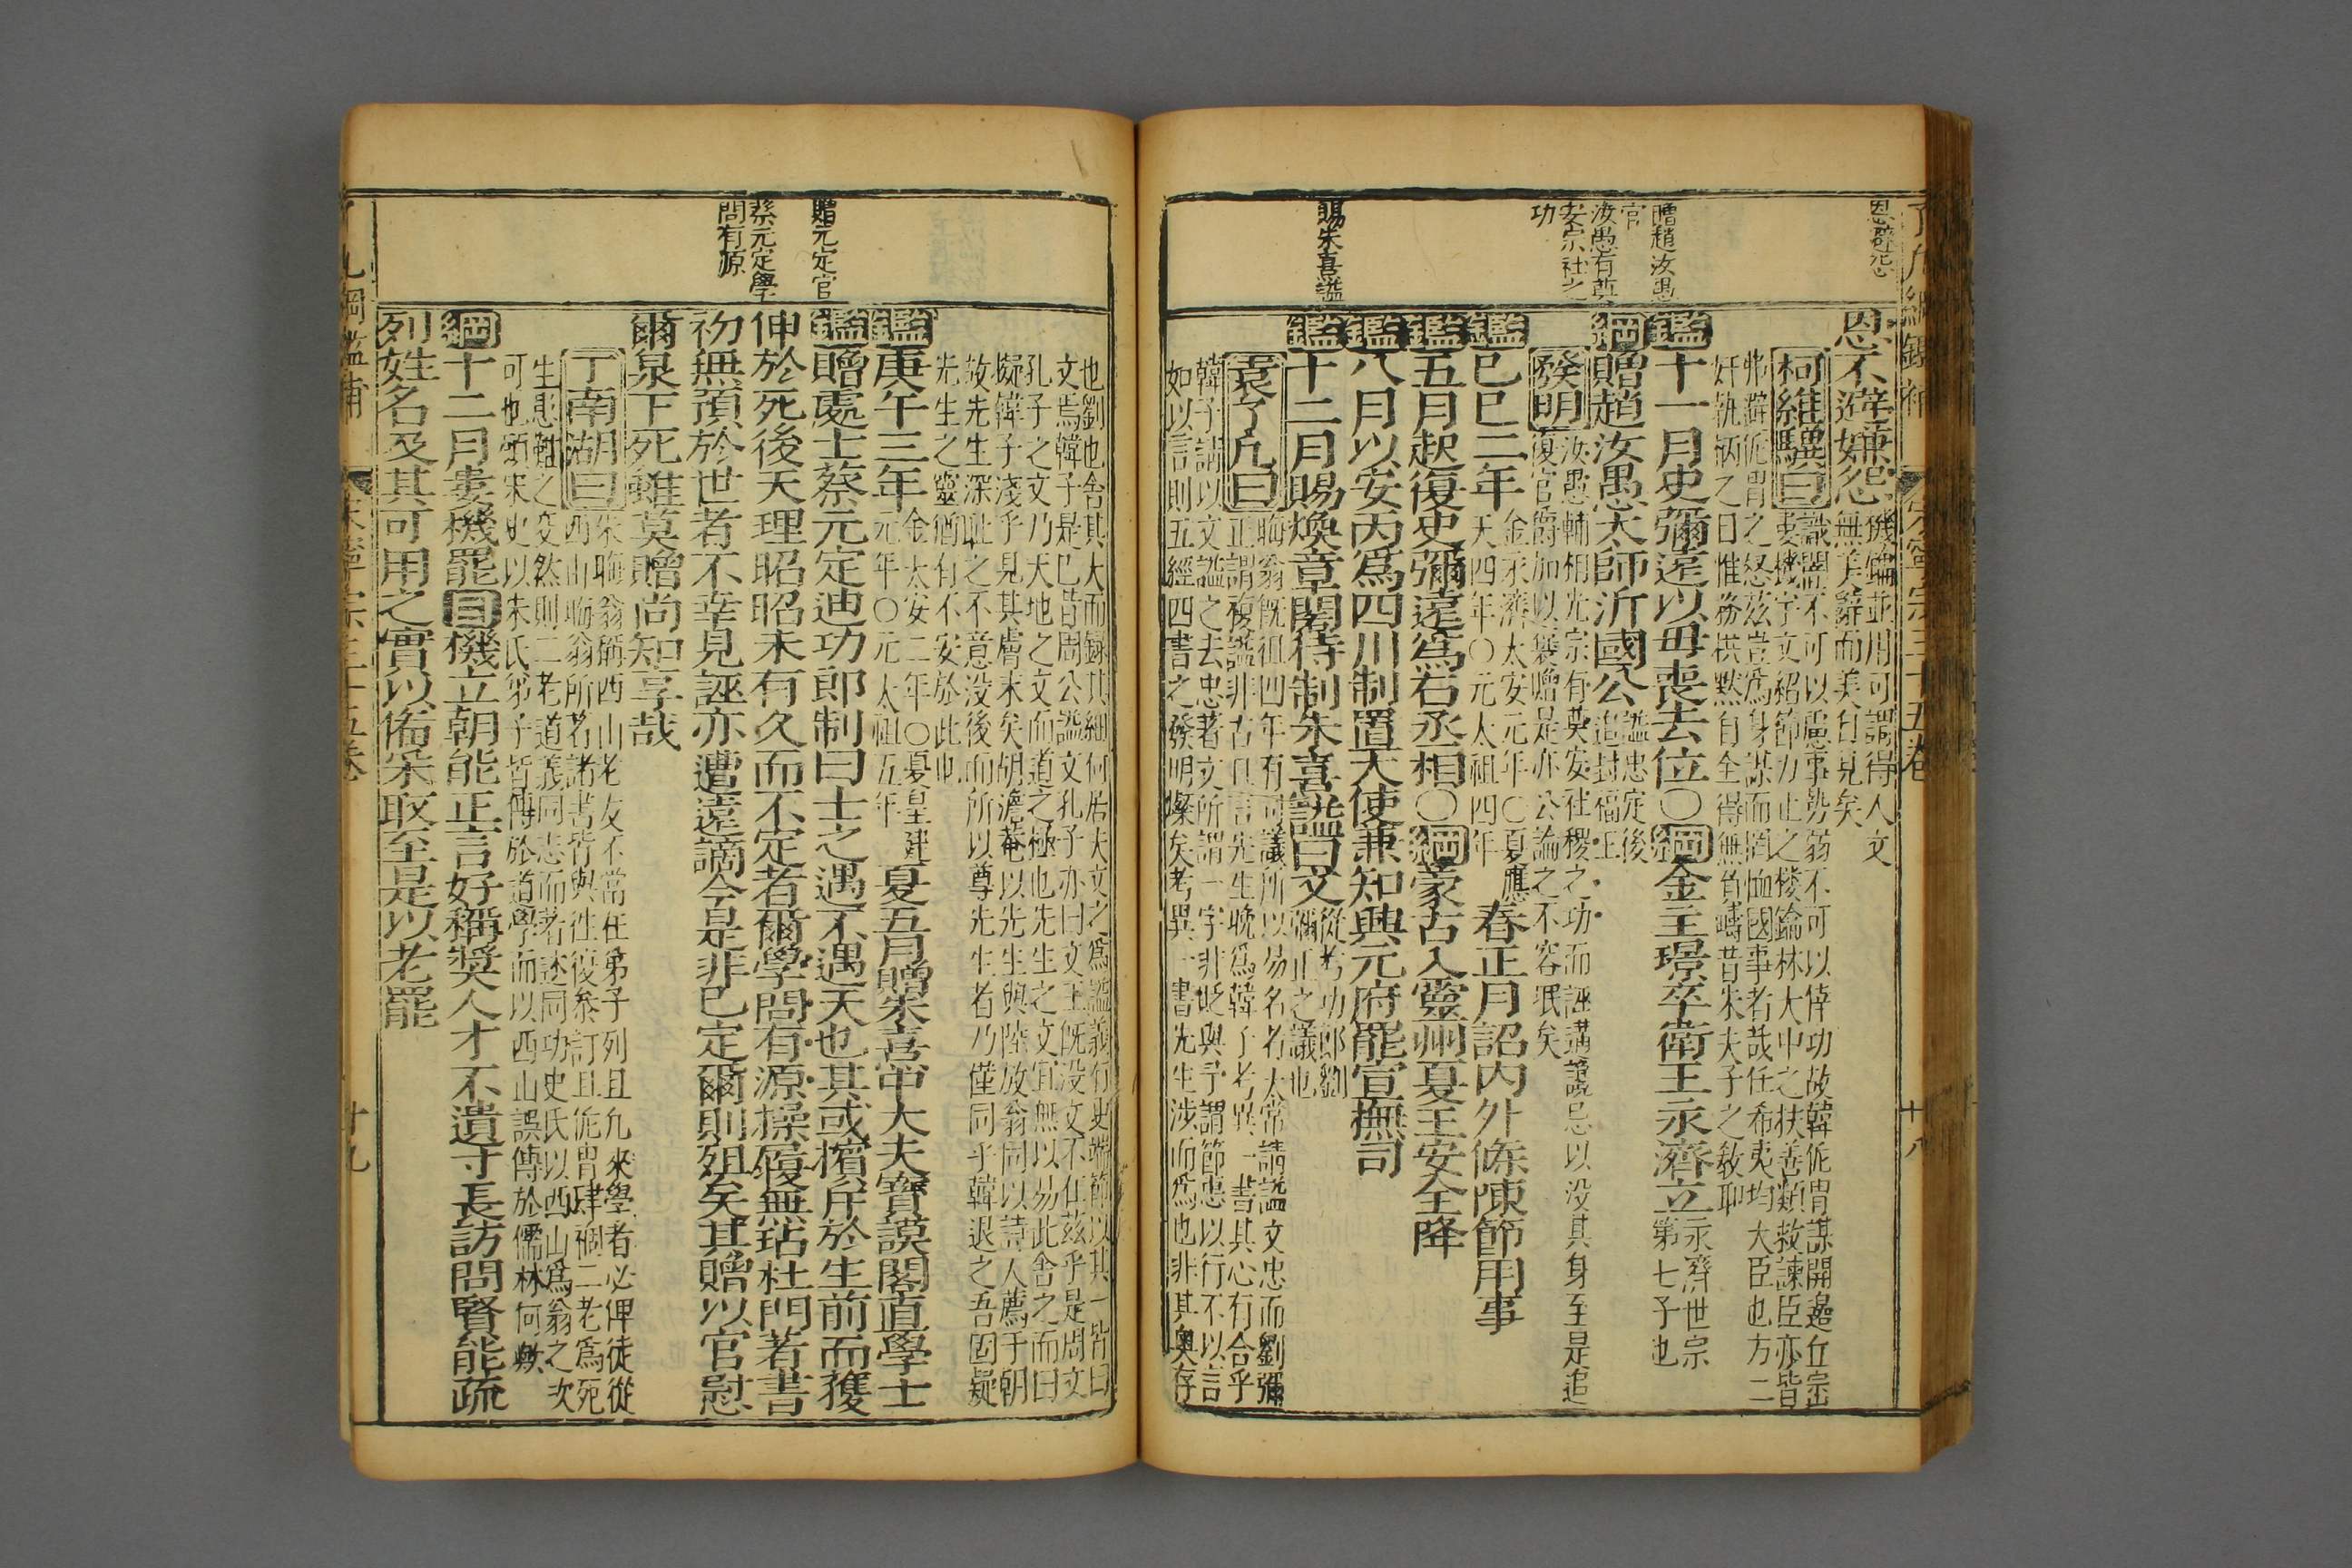 恩避怨
贈趙汝愚官
汝愚有奠安宗社之功
賜朱熹諡
恩不避嫌怨機鑰並用可謂得人文
無美辭而美自見矣
柯維騏曰識闇不可以慮事勢弱不可以倖功故韓侂冑謀開邊丘崈
婁機字文紹節力止之倪鑰林大中之扶善類救諫臣亦皆
弗避侂冑之怒茲豈爲身謀而罔恤國事者哉任希夷均大臣也方二
奸執柄之日惟務拱默自全得無負疇昔朱夫子之敎耶
鑑十一月史彌遠以母喪去位〇綱金主璟卒衛王永濟立永濟世宗
第七子也
綱贈趙汝愚太師沂國公諡忠定後
追封福王
發明汝愚輔相光宗有奠安社稷之功而誣遘讒忌以没其身至是追
復官爵加以襃贈是亦公論之不容泯矣
鑑己巳二年金永濟太安元年〇夏應
天四年〇元太祖四年春正月詔内外條陳節用事
鑑五月起復史彌遠爲右丞相〇綱蒙古入靈州夏王安全降
鑑八月以安丙爲四川制置大使兼知興元府罷宣撫司
鑑十二月賜煥章閣待制朱熹諡曰文從考功郎劉
彌正之議也
袁了凡曰晦翁旣徂四年有司議所以易名者太常請諡文忠而劉彌
正謂複諡非古且言先生晚爲韓子考異一書其心有合乎
韓子請以文諡之去忠著文所謂一字非貶與予謂節惠以行不以言
如以言則五經四書之發明燦矣考異一書先生涉而爲也非其奥存
贈元定官
蔡元定學問有源
也劉也舍其大而録其細何居夫文之爲諡義有史端節以其一皆曰
文焉韓子是已昔周公諡文孔子亦曰文王旣没文不在茲乎是周文
孔子之文乃天地之文而道之極也先生之文宜無以易此舍之而曰
擬韓子淺乎見其膚末矣胡澹菴以先生與陸放翁同以詩人薦于朝
故先生深耻之不意没後而所以尊先生者乃僅同乎韓退之吾固疑
先生之靈猶有不安於此也
鑑庚午三年金太安二年〇夏皇建
元年〇元太祖五年夏五月贈朱熹中大夫寶謨閣直學士
鑑贈處士蔡元定迪功郎制曰士之遇不遇天也其或擯斥於生前而獲
伸於死後天理昭昭未有久而不定者爾學問有源操履無玷杜門著書
初無預於世者不幸見誣亦遭遠謫今是非已定爾則殂矣其贈以官慰
爾泉下死雖莫贈尚知享哉
丁南湖曰朱晦翁稱西山老友不當在弟子列且凡來學者必俾徒從
西山晦翁所著諸書皆與往復參訂且侂冑肆禍二老爲死
生患難之交然則二老道義同志而著述同功史氏以西山爲翁之次
可也頃宋史以朱氏弟子皆傳於道學而以西山誤傳於儒林何歟
綱十二月婁機罷目機立朝能正言好稱奬人才不遺寸長訪問賢能疏
列姓名及其可用之實以俻采取至是以老罷